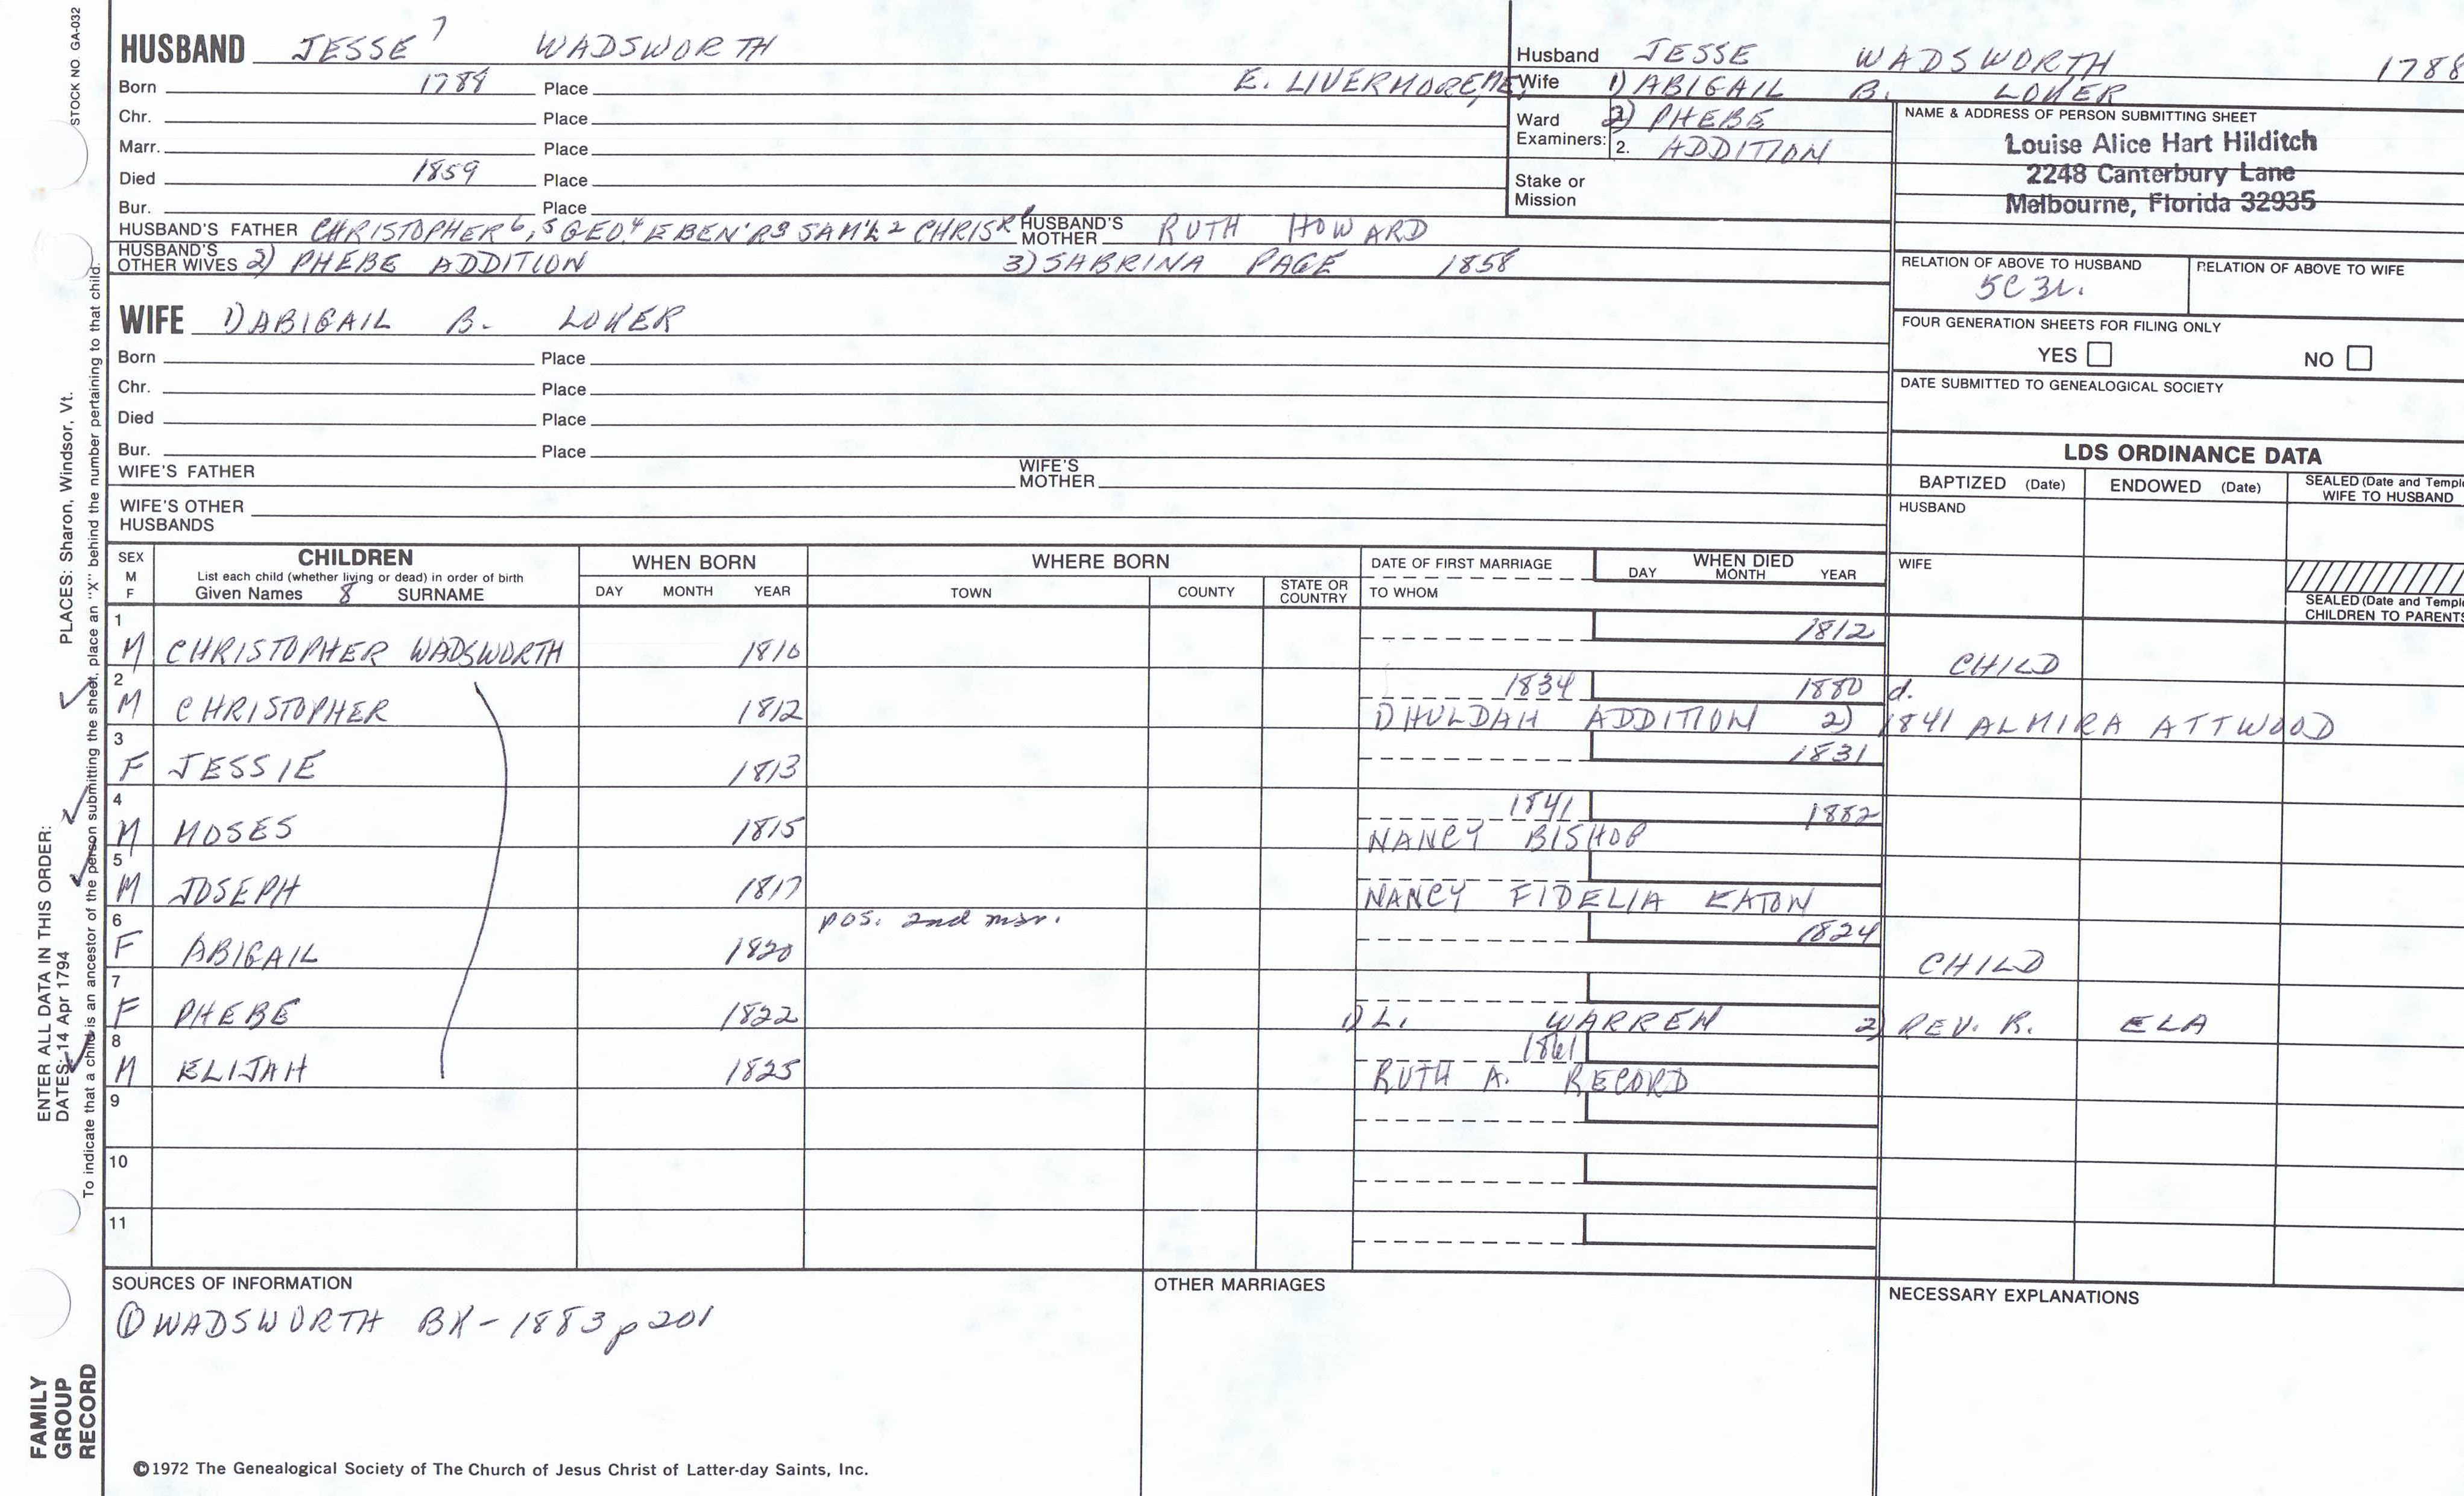 STOCK NO. GA-032
HUSBAND JESSE 7 WADSWORTH
Born 1788 Place E. LIVERMORE, ME.
Chr. Place
Marr. Place
Died 1859 Place
Bur. Place
HUSBAND'S FATHER CHRISTOPHER 6, 5 GEO. 4 EBEN'R 3 SAM'L 2 CHRIS'R 1 HUSBAND'S MOTHER RUTH HOWARD
HUSBAND'S OTHER WIVES 2) PHEBE ADDITION 3) SABRINA PAGE 1858
WIFE 1) ABIGAIL B. LOVER
Born Place
Chr. Place
Died Place
Bur. Place
WIFE'S FATHER WIFE'S MOTHER
WIFE'S OTHER HUSBANDS
Husband JESSE WADSWORTH 1788
Wife 1) ABIGAIL B. LOVER
Ward 2) PHEBE
Examiners: 2. ADDITION
Stake or Mission
NAME & ADDRESS OF PERSON SUBMITTING SHEET
Louise Alice Hart Hilditch
2248 Canterbury Lane
Melbourne, Florida 32935
RELATION OF ABOVE TO HUSBAND RELATION OF ABOVE TO WIFE
5C3r.
FOUR GENERATION SHEETS FOR FILING ONLY
YES NO
DATE SUBMITTED TO GENEALOGICAL SOCIETY
LDS ORDINANCE DATA
BAPTIZED (Date) ENDOWED (Date) SEALED (Date and Temple) WIFE TO HUSBAND
HUSBAND
WIFE
SEALED (Date and Temple) CHILDREN TO PARENTS
SEX M F
CHILDREN
List each child (whether living or dead) in order of birth
Given Names 8 SURNAME
WHEN BORN
DAY MONTH YEAR
WHERE BORN
TOWN COUNTY STATE OR COUNTRY
DATE OF FIRST MARRIAGE
TO WHOM
WHEN DIED
DAY MONTH YEAR
1 1812
M CHRISTOPHER WADSWORTH 1810 CHILD
2 1834 1880 d.
M CHRISTOPHER 1812 1) HULDAH ADDITION 2) 1841 ALMIRA ATTWOOD
3 1831
F JESSIE 1813
4 1841 1882
M MOSES 1815 NANCY BISHOP
5
M JOSEPH 1817 NANCY FIDELIA EATON
6 pos. 2nd mar. 1824
F ABIGAIL 1820 CHILD
7
F PHEBE 1822 1) L. WARREN 2) REV. R. ELA
8 1861
M ELIJAH 1825 RUTH A. RECORD
9
10
11
SOURCES OF INFORMATION
① WADSWORTH BK - 1883 p 201
OTHER MARRIAGES
NECESSARY EXPLANATIONS
©1972 The Genealogical Society of The Church of Jesus Christ of Latter-day Saints, Inc.
FAMILY GROUP RECORD
ENTER ALL DATA IN THIS ORDER:
DATES: 14 Apr 1794
PLACES: Sharon, Windsor, Vt.
To indicate that a child is an ancestor of the person submitting the sheet, place an "X" behind the number pertaining to that child.